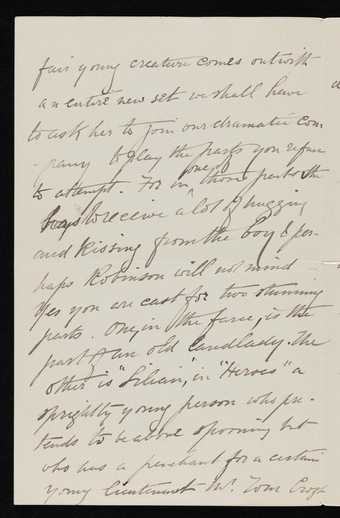 fair young creature comes out with
an entire new set we shall have
to ask her to join our dramatic com
-pany to play the parts you refuse
to attempt. For in one of those parts the
has to receive a lot of hugging
and kissing from the boy & per-
haps Robinson will not mind
Yes you are cast for two stunning
parts. One, in the farce, is the
part of an old landlady. The
other is "Lilian", in "Heroes" a
sprightly young person who pre-
tends to be above spooning but
who has a penchant for a certain
young lieutenant Mr. Tom